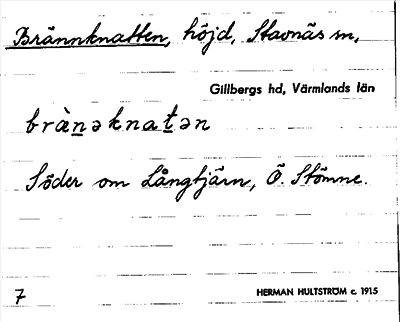 Brännknatten, höjd, Stavnäs sn,
Gillbergs hd, Värmlands län
brànəknatən
Söder om Långtjärn, Ö. Stömne.
7
HERMAN HULTSTRÖM c. 1915